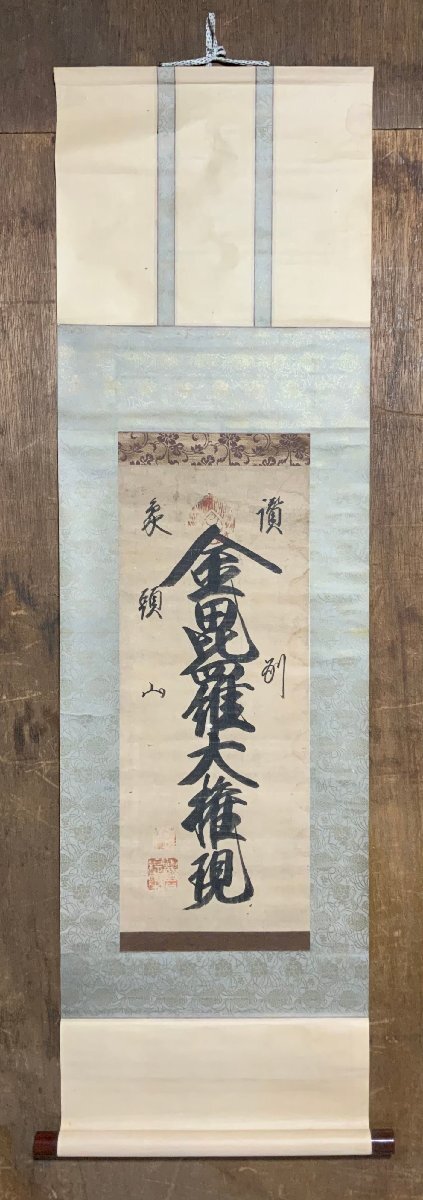 讃刕
金毘羅大権現
象頭山